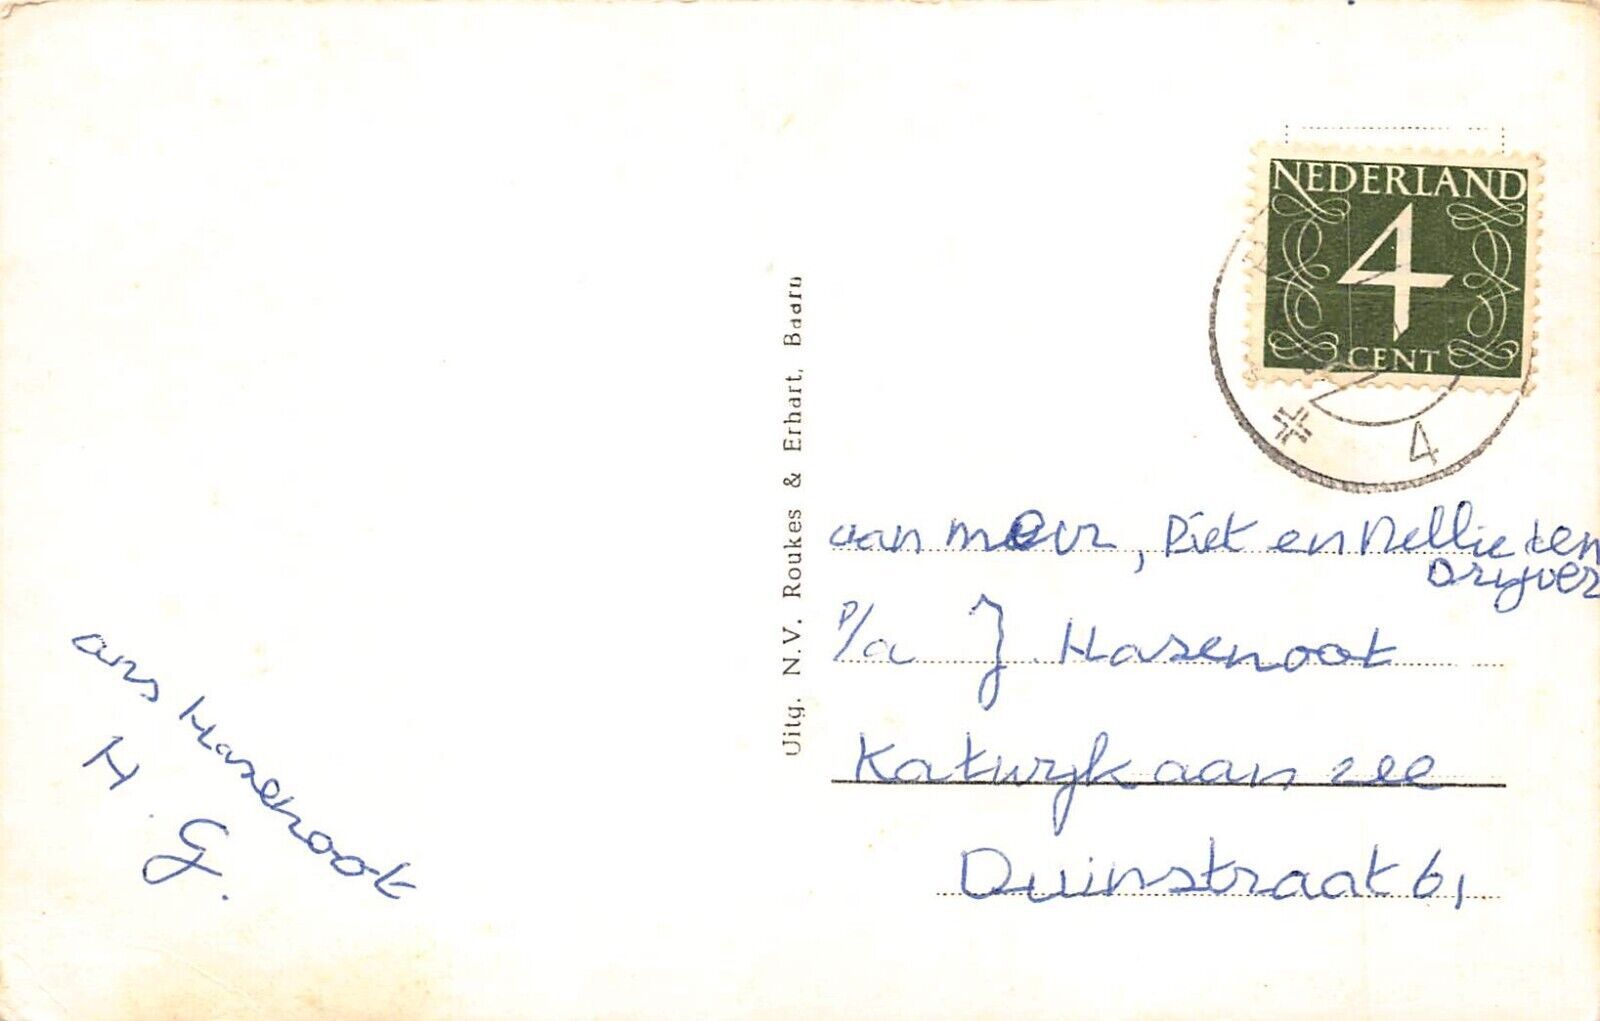 ans Hasenoot
H. G.
Uitg. N.V. Roukes & Erhart, Baarn
NEDERLAND
4
CENT
4
aan mevr, Piet en Nellie den
Drijver
P/a J Hasenoot
Katwijk aan zee
Duinstraat 61